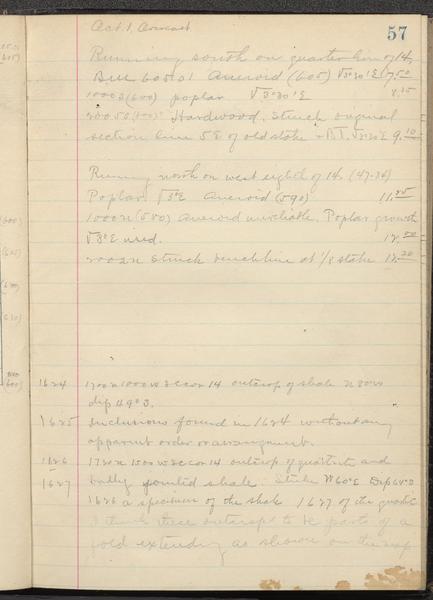 57
Oct. 1, Overcast
Running south on quarter line of 14,
Aneroid (605) V3°30'E 7.50
1000 S (600) poplar V3°30'E 8.15
2005 S Hardwood. Struck original
section line 5 E of old stake + B.T. 9.10
Running north on west eighth of 14, (47-26)
Poplar V3°E Aneroid (590) 11.45
1000 N (580) Aneroid unreliable. Poplar growth
V3°E used. 12.00
2002 N Struck line at 1/8 stake 12.20
1624 1700 N 1000 W SE cor 14 outcrop of shale N 80 W
dip 49° S.
1625 Inclusions found in 1624 without any
apparent order or arrangement.
1626 1720 N 1500 W SE cor 14 outcrop of quartzite and
1627 badly jointed shale. Strike W 60° E Dip 64° S
1626 a specimen of the shale 1627 of the quartzite
I think these outcrops to be parts of a
fold extending as shown on the map